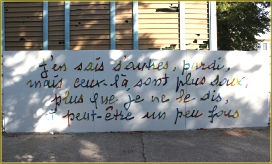 j'en sais d'autres, pardi,
mais ceux-là sont plus doux,
plus que je ne le dis,
et peut-être un peu fous